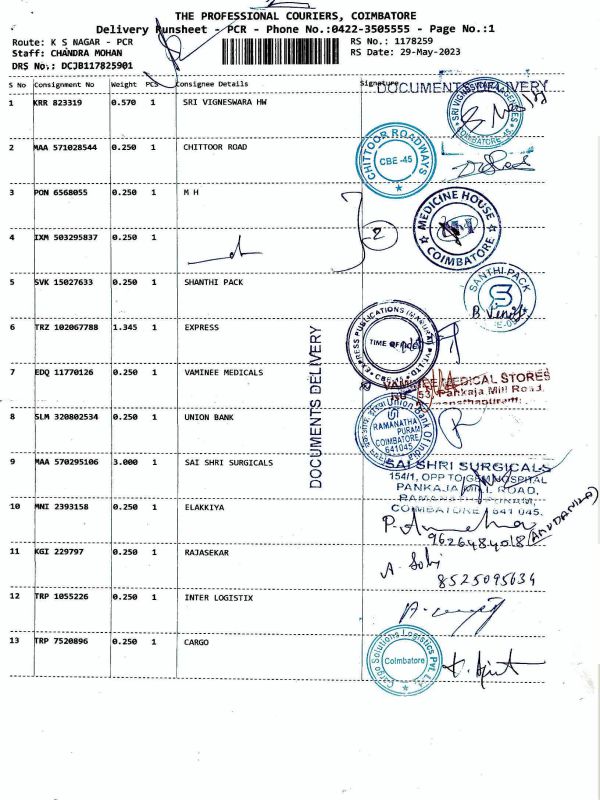 THE PROFESSIONAL COURIERS, COIMBATORE
Delivery Runsheet - PCR - Phone No.:0422-3505555 - Page No.:1
Route: K S NAGAR - PCR
RS No.: 1178259
Staff: CHANDRA MOHAN
RS Date: 29-May-2023
DRS No.: DCJB117825901
S No Consignment No Weight PCS Consignee Details Signature
DOCUMENTS DELIVERY
1 KRR 823319 0.570 1 SRI VIGNESWARA HW
COIMBATORE -45
2 MAA 571028544 0.250 1 CHITTOOR ROAD
CHITTOOR ROADWAYS
CBE -45
3 PON 6568055 0.250 1 M H
MEDICINE HOUSE
COIMBATORE
2
4 IXM 503295837 0.250 1
5 SVK 15027633 0.250 1 SHANTHI PACK
SANTHI PACK
6 TRZ 102067788 1.345 1 EXPRESS
EXPRESS PUBLICATIONS (MADURAI) PVT. LTD.
CBE-45
DOCUMENTS DELIVERY
7 EDQ 11770126 0.250 1 VAMINEE MEDICALS
VAMINEE MEDICAL STORES
53, Pankaja Mill Road,
Ramanathapuram,
8 SLM 320802534 0.250 1 UNION BANK
Union Bank Of India
RAMANATHA
PURAM
COIMBATORE
641045
9 MAA 570295106 3.000 1 SAI SHRI SURGICALS
SAI SHRI SURGICALS
154/1, OPP TO GEM HOSPITAL
PANKAJA MILL ROAD,
COIMBATORE 641 045.
10 MNI 2393158 0.250 1 ELAKKIYA
9626484018
11 KGI 229797 0.250 1 RAJASEKAR
8525095634
12 TRP 1055226 0.250 1 INTER LOGISTIX
13 TRP 7520896 0.250 1 CARGO
Cargo Solutions Logistics Pvt. Ltd.
Coimbatore